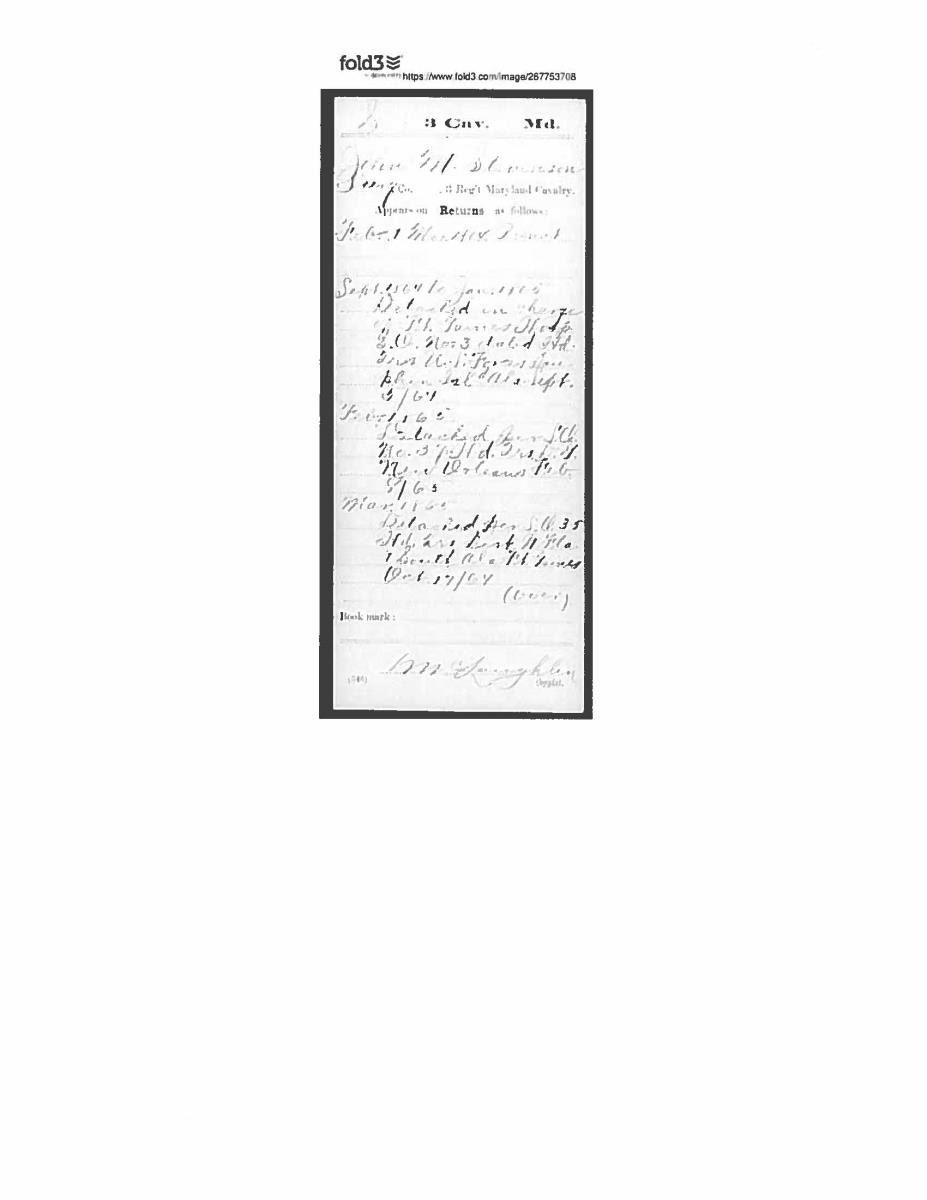 fold3
https://www.fold3.com/image/267753708
S
3 Cav. Md.
John M. Stevenson
Surg Co. , 3 Reg't Maryland Cavalry.
Appears on Returns as follows:
Feb. & Mar. 1864 Present
Sept. 1864 to Jan. 1865
Detached in charge
of Ft. Gaines Hosp
S.O. No. 3 dated Hd.
Qrs U.S. Forces Dau
phin Isl'd Ala Sept.
/64
Feb. 1865
Detached per S.O.
No. 3 Hd. Qrs
New Orleans Feb.
/65
Mar. 1865
Detached per S.O. 35
Hd. Qrs Dist. W Fla
& South Ala Ft Gaines
Oct. 17/64
(Over)
Book mark:
McLaughlin
Copyist.